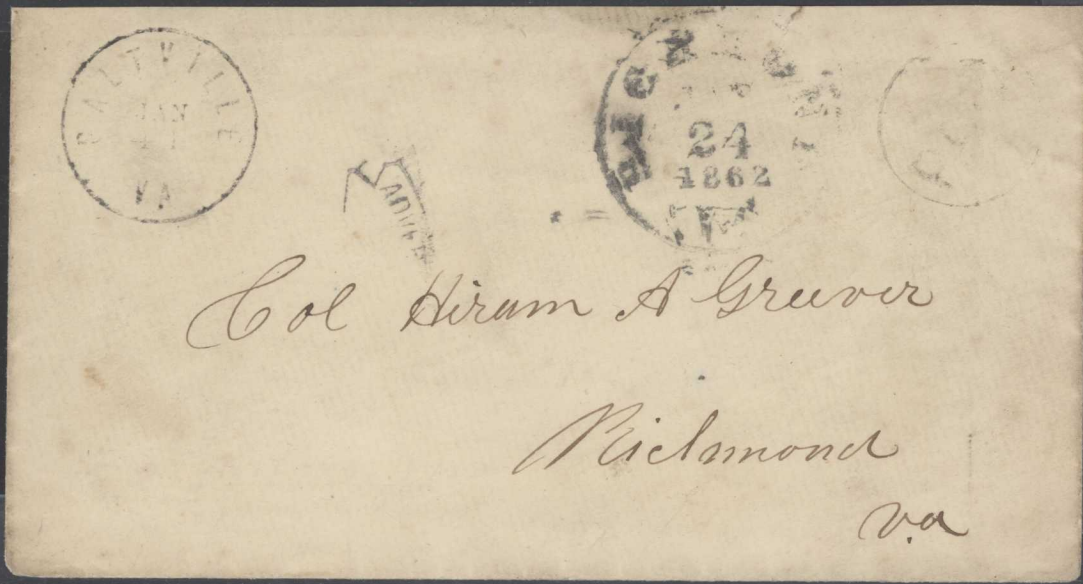 SALTVILLE
JAN
VA
RICHMOND
24
1862
Va.
Col Hiram A Greever
Richmond
Va